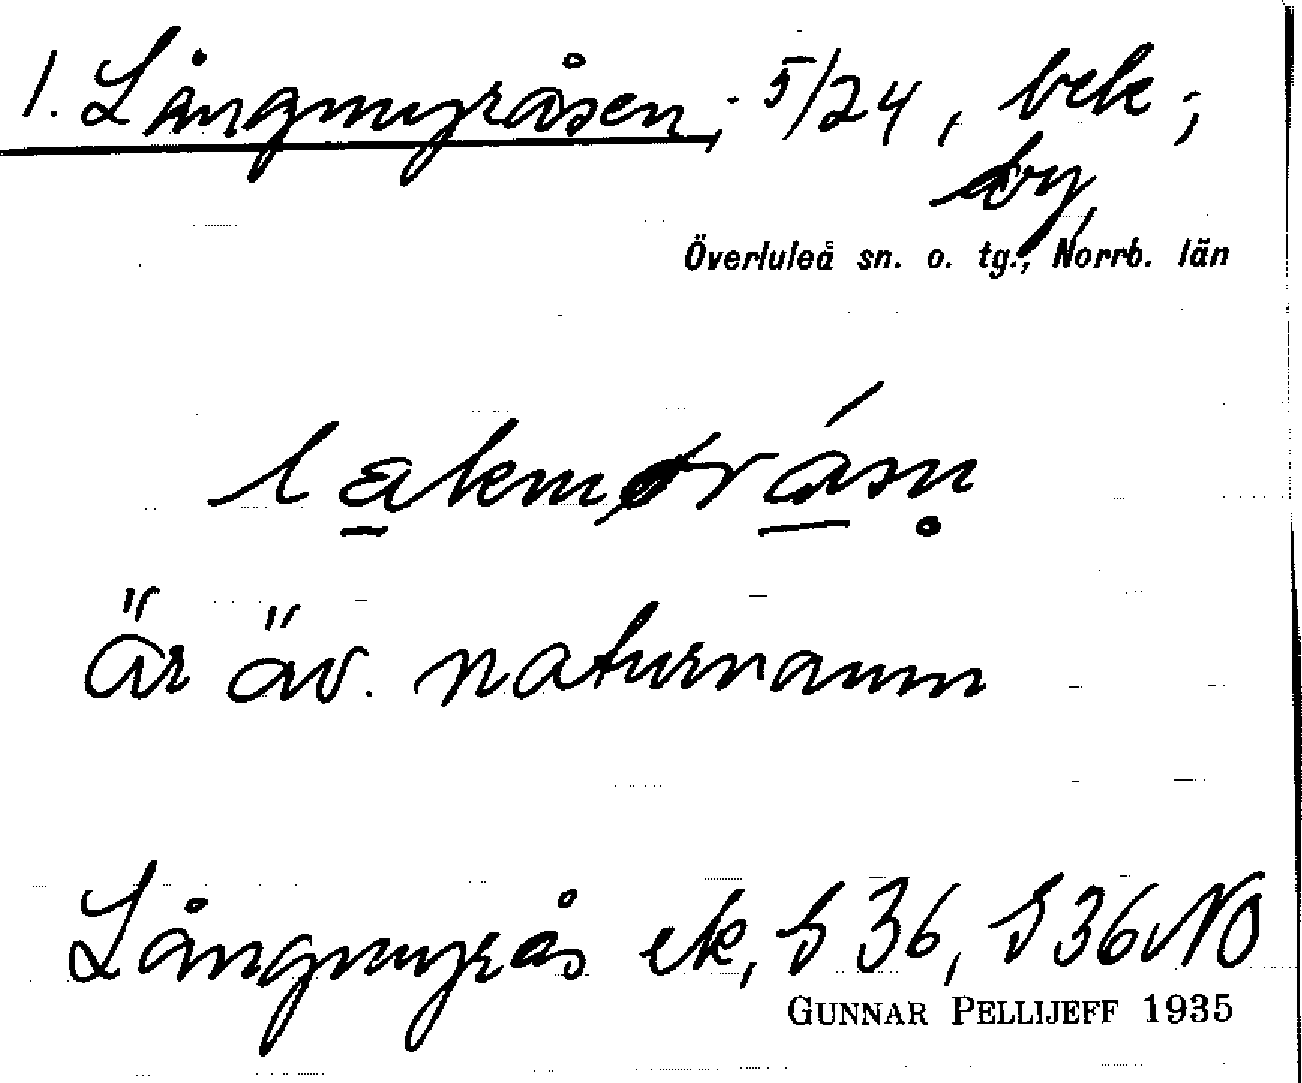 1. Långmyråsen, 5/24, bek;
by,
Överluleå sn. o. tg., Norrb. län
är äv. naturnamn
Långmyrås ek, S 36, S 36 NO
GUNNAR PELLIJEFF 1935